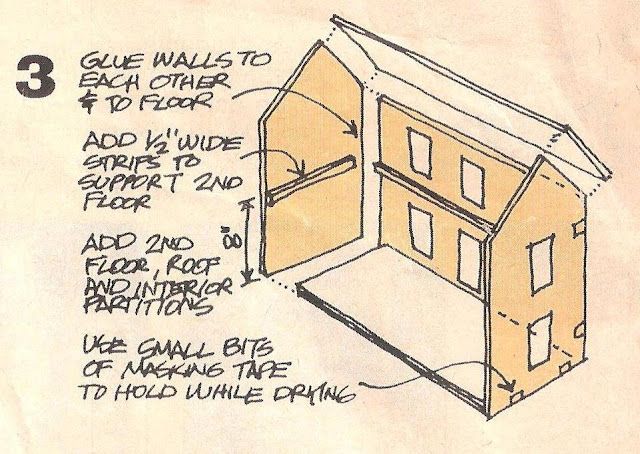 3
GLUE WALLS TO
EACH OTHER
& TO FLOOR
ADD 1/2" WIDE
STRIPS TO
SUPPORT 2ND
FLOOR
8"
ADD 2ND
FLOOR, ROOF
AND INTERIOR
PARTITIONS
USE SMALL BITS
OF MASKING TAPE
TO HOLD WHILE DRYING